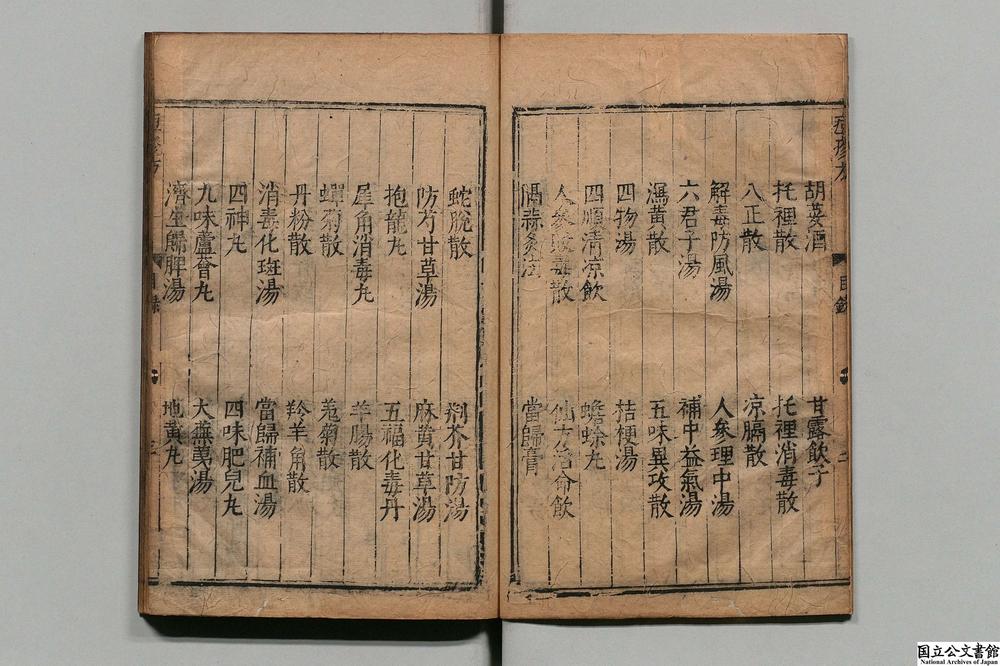 痘疹方 目録 二
胡荽酒 甘露飲子
托裡散 托裡消毒散
八正散 凉膈散
解毒防風湯 人參理中湯
六君子湯 補中益氣湯
瀉黄散 五味異攻散
四物湯 桔梗湯
四順清凉飲 蟾蜍丸
人參敗毒散 仙方活命飲
隔蒜灸法 當歸膏
蛇脫散 荆芥甘防湯
防芍甘草湯 麻黄甘草湯
抱龍丸 五福化毒丹
犀角消毒丸 羊腸散
蟬菊散 羗菊散
丹粉散 羚羊角散
消毒化斑湯 當歸補血湯
四神丸 四味肥兒丸
九味蘆薈丸 大蕪荑湯
濟生歸脾湯 地黄丸
三
国立公文書館
National Archives of Japan